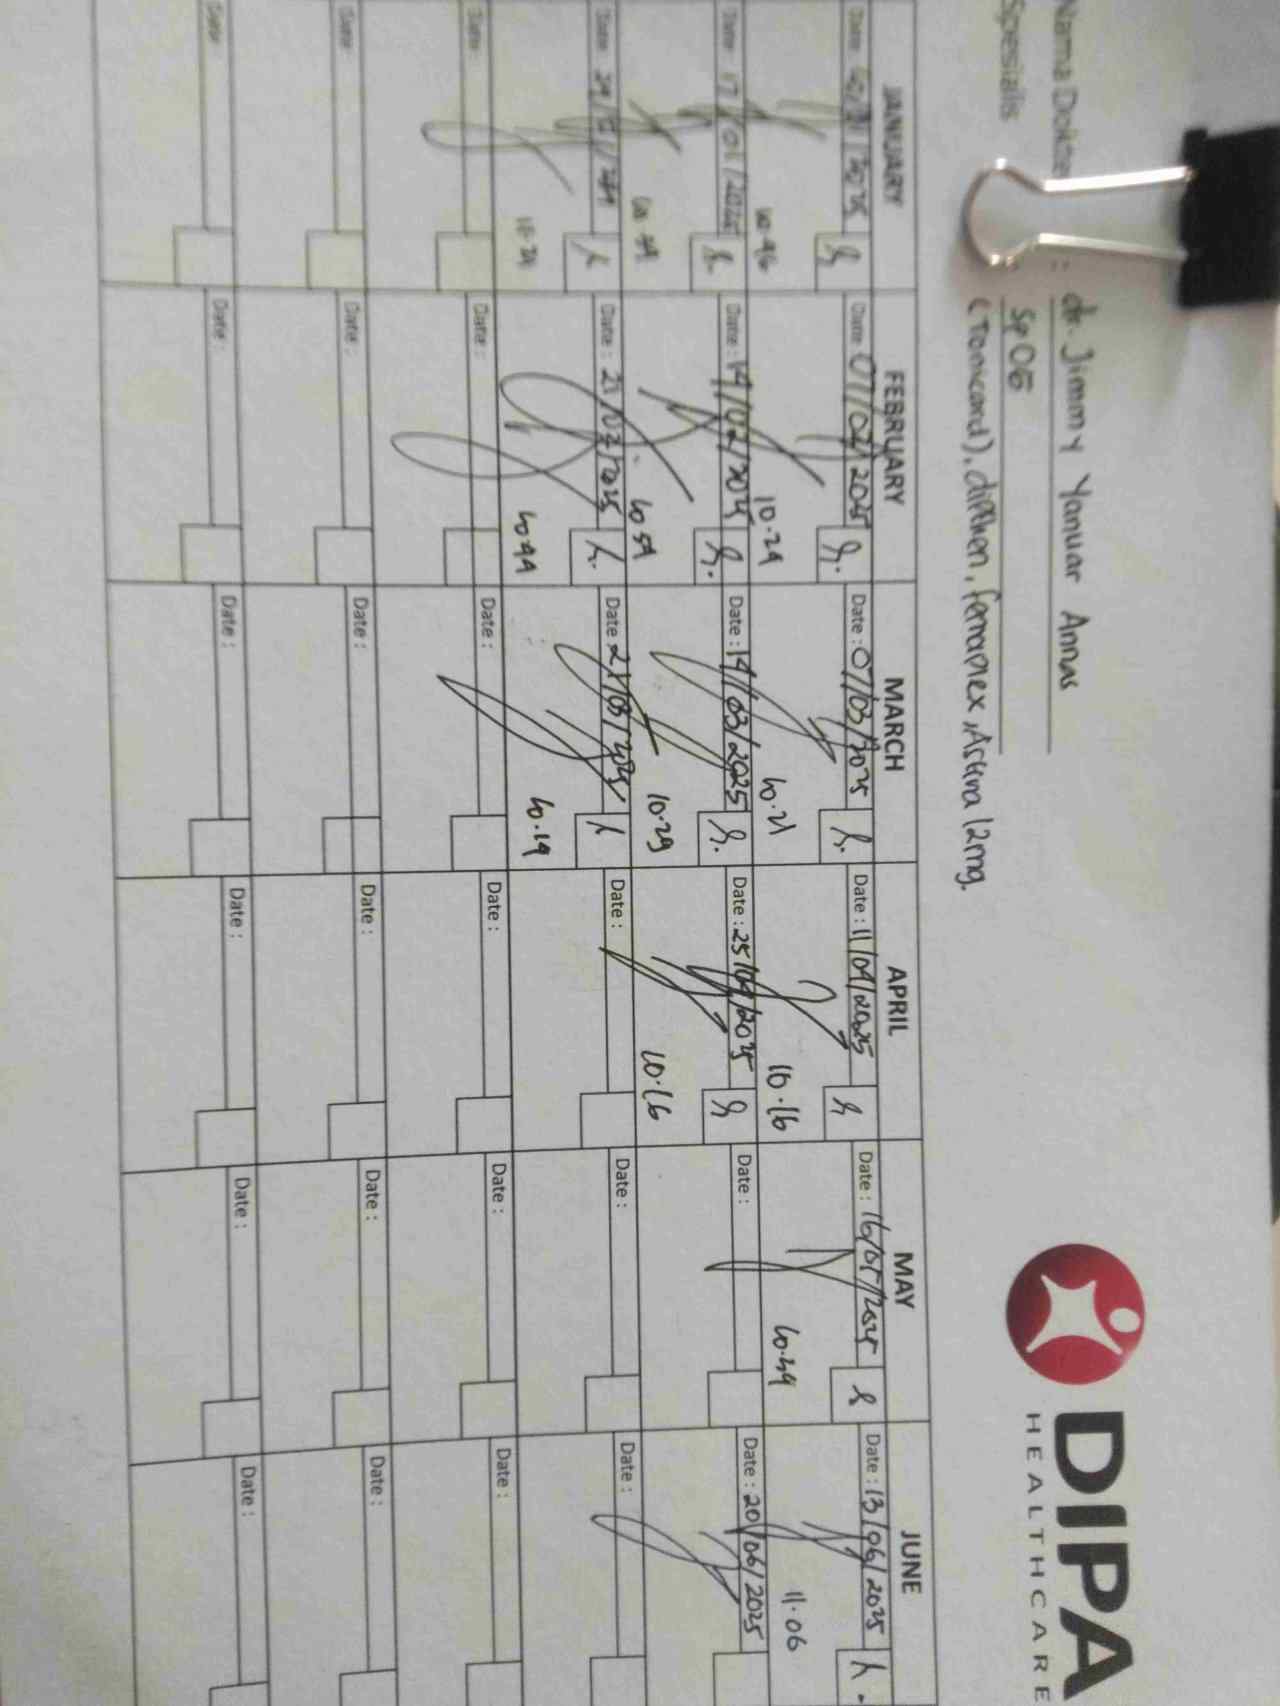 DIPA
HEALTHCARE
Nama Dokter : dr. Jimmy Yanuar Annas
Spesialis : SpOG
(Tonicard), dipthen, ferraplex, Asthra 12mg.
JANUARY FEBRUARY MARCH APRIL MAY JUNE
Date: Date: 07/02/2025 Date: 07/03/2025 Date: 11/04/2025 Date: 16/05/2025 Date: 13/06/2025
10.46 10.24 10.21 10.16 10.49 11.06
Date: 17/01/2025 Date: 14/02/2025 Date: 14/03/2025 Date: 25/04/2025 Date: Date: 20/06/2025
10.49 10.59 10.29 10.16
Date: Date: 21/02/2025 Date: 21/03/2025 Date: Date: Date:
10.44 10.19
Date: Date: Date: Date: Date: Date:
Date: Date: Date: Date: Date: Date:
Date: Date: Date: Date: Date: Date: